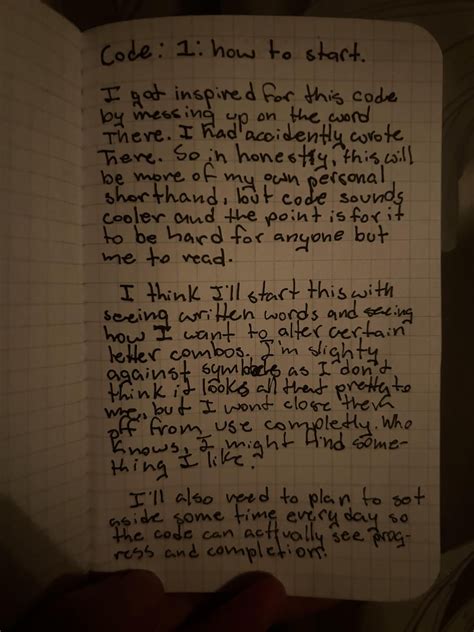 Code: 1: how to start.
I got inspired for this code
by messing up on the word
There. I had accidently wrote
Tere. So in honestly, this will
be more of my own personal
shorthand, but code sounds
cooler and the point is for it
to be hard for anyone but
me to read.
I think I'll start this with
seeing written words and seeing
how I want to alter certain
letter combos. I'm slighty
against symbols as I don't
think it looks all that pretty to
me, but I wont close them
off from use completly. Who
knows, I might find some-
thing I like?
I'll also need to plan to set
aside some time every day so
the code can acttually see prog-
ress and completion.